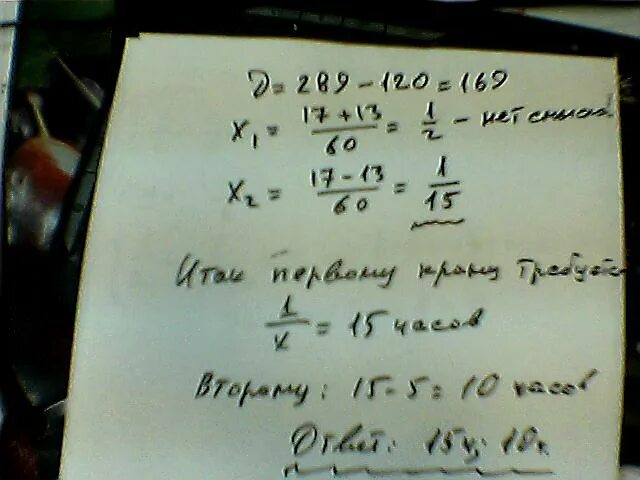 D = 289 - 120 = 169
x₁ = (17 + 13)/60 = 1/2 - нет смысла
x₂ = (17 - 13)/60 = 1/15
Итак первому крану требуется
1/x = 15 часов
Второму: 15 - 5 = 10 часов
Ответ: 15ч; 10ч